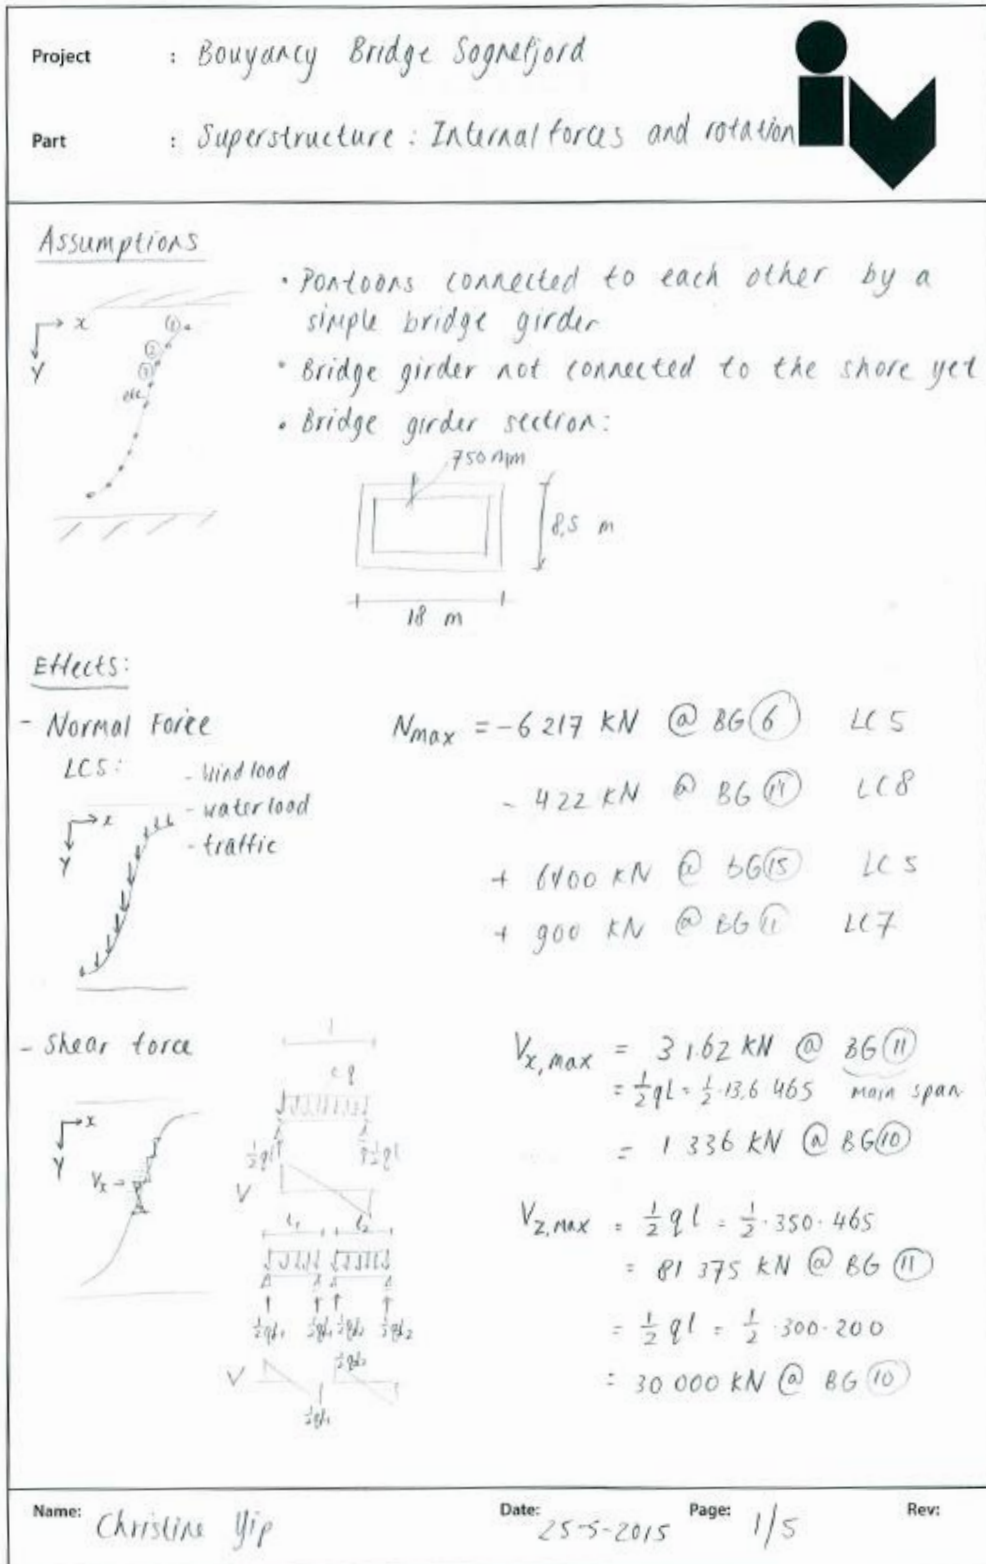 Project : Bouyancy Bridge Sognefjord
Part : Superstructure : Internal forces and rotation
iv
Assumptions
x
Y
①
②
③
etc
• Pontoons connected to each other by a
simple bridge girder
• Bridge girder not connected to the shore yet
• Bridge girder section:
750 mm
8,5 m
18 m
Effects:
- Normal Force
LC5:
- Wind load
- water load
- traffic
x
Y
Nmax = -6 217 KN @ BG⑥ LC5
- 422 KN @ BG LC8
+ 6400 KN @ BG⑮ LC5
+ 900 KN @ BG⑪ LC7
- Shear force
x
Y
Vx
l
q
½ql ½ql
V
l1 l2
½ql1 ½ql1 ½ql2 ½ql2
V ½ql2
½ql1
Vx,max = 3 162 KN @ BG⑪
= ½ql = ½·13,6 465 main span
= 1 336 KN @ BG⑩
Vz,max = ½ql = ½·350·465
= 81 375 KN @ BG⑪
= ½ql = ½·300·200
= 30 000 KN @ BG⑩
Name: Christine Yip
Date: 25-5-2015
Page: 1/5
Rev: